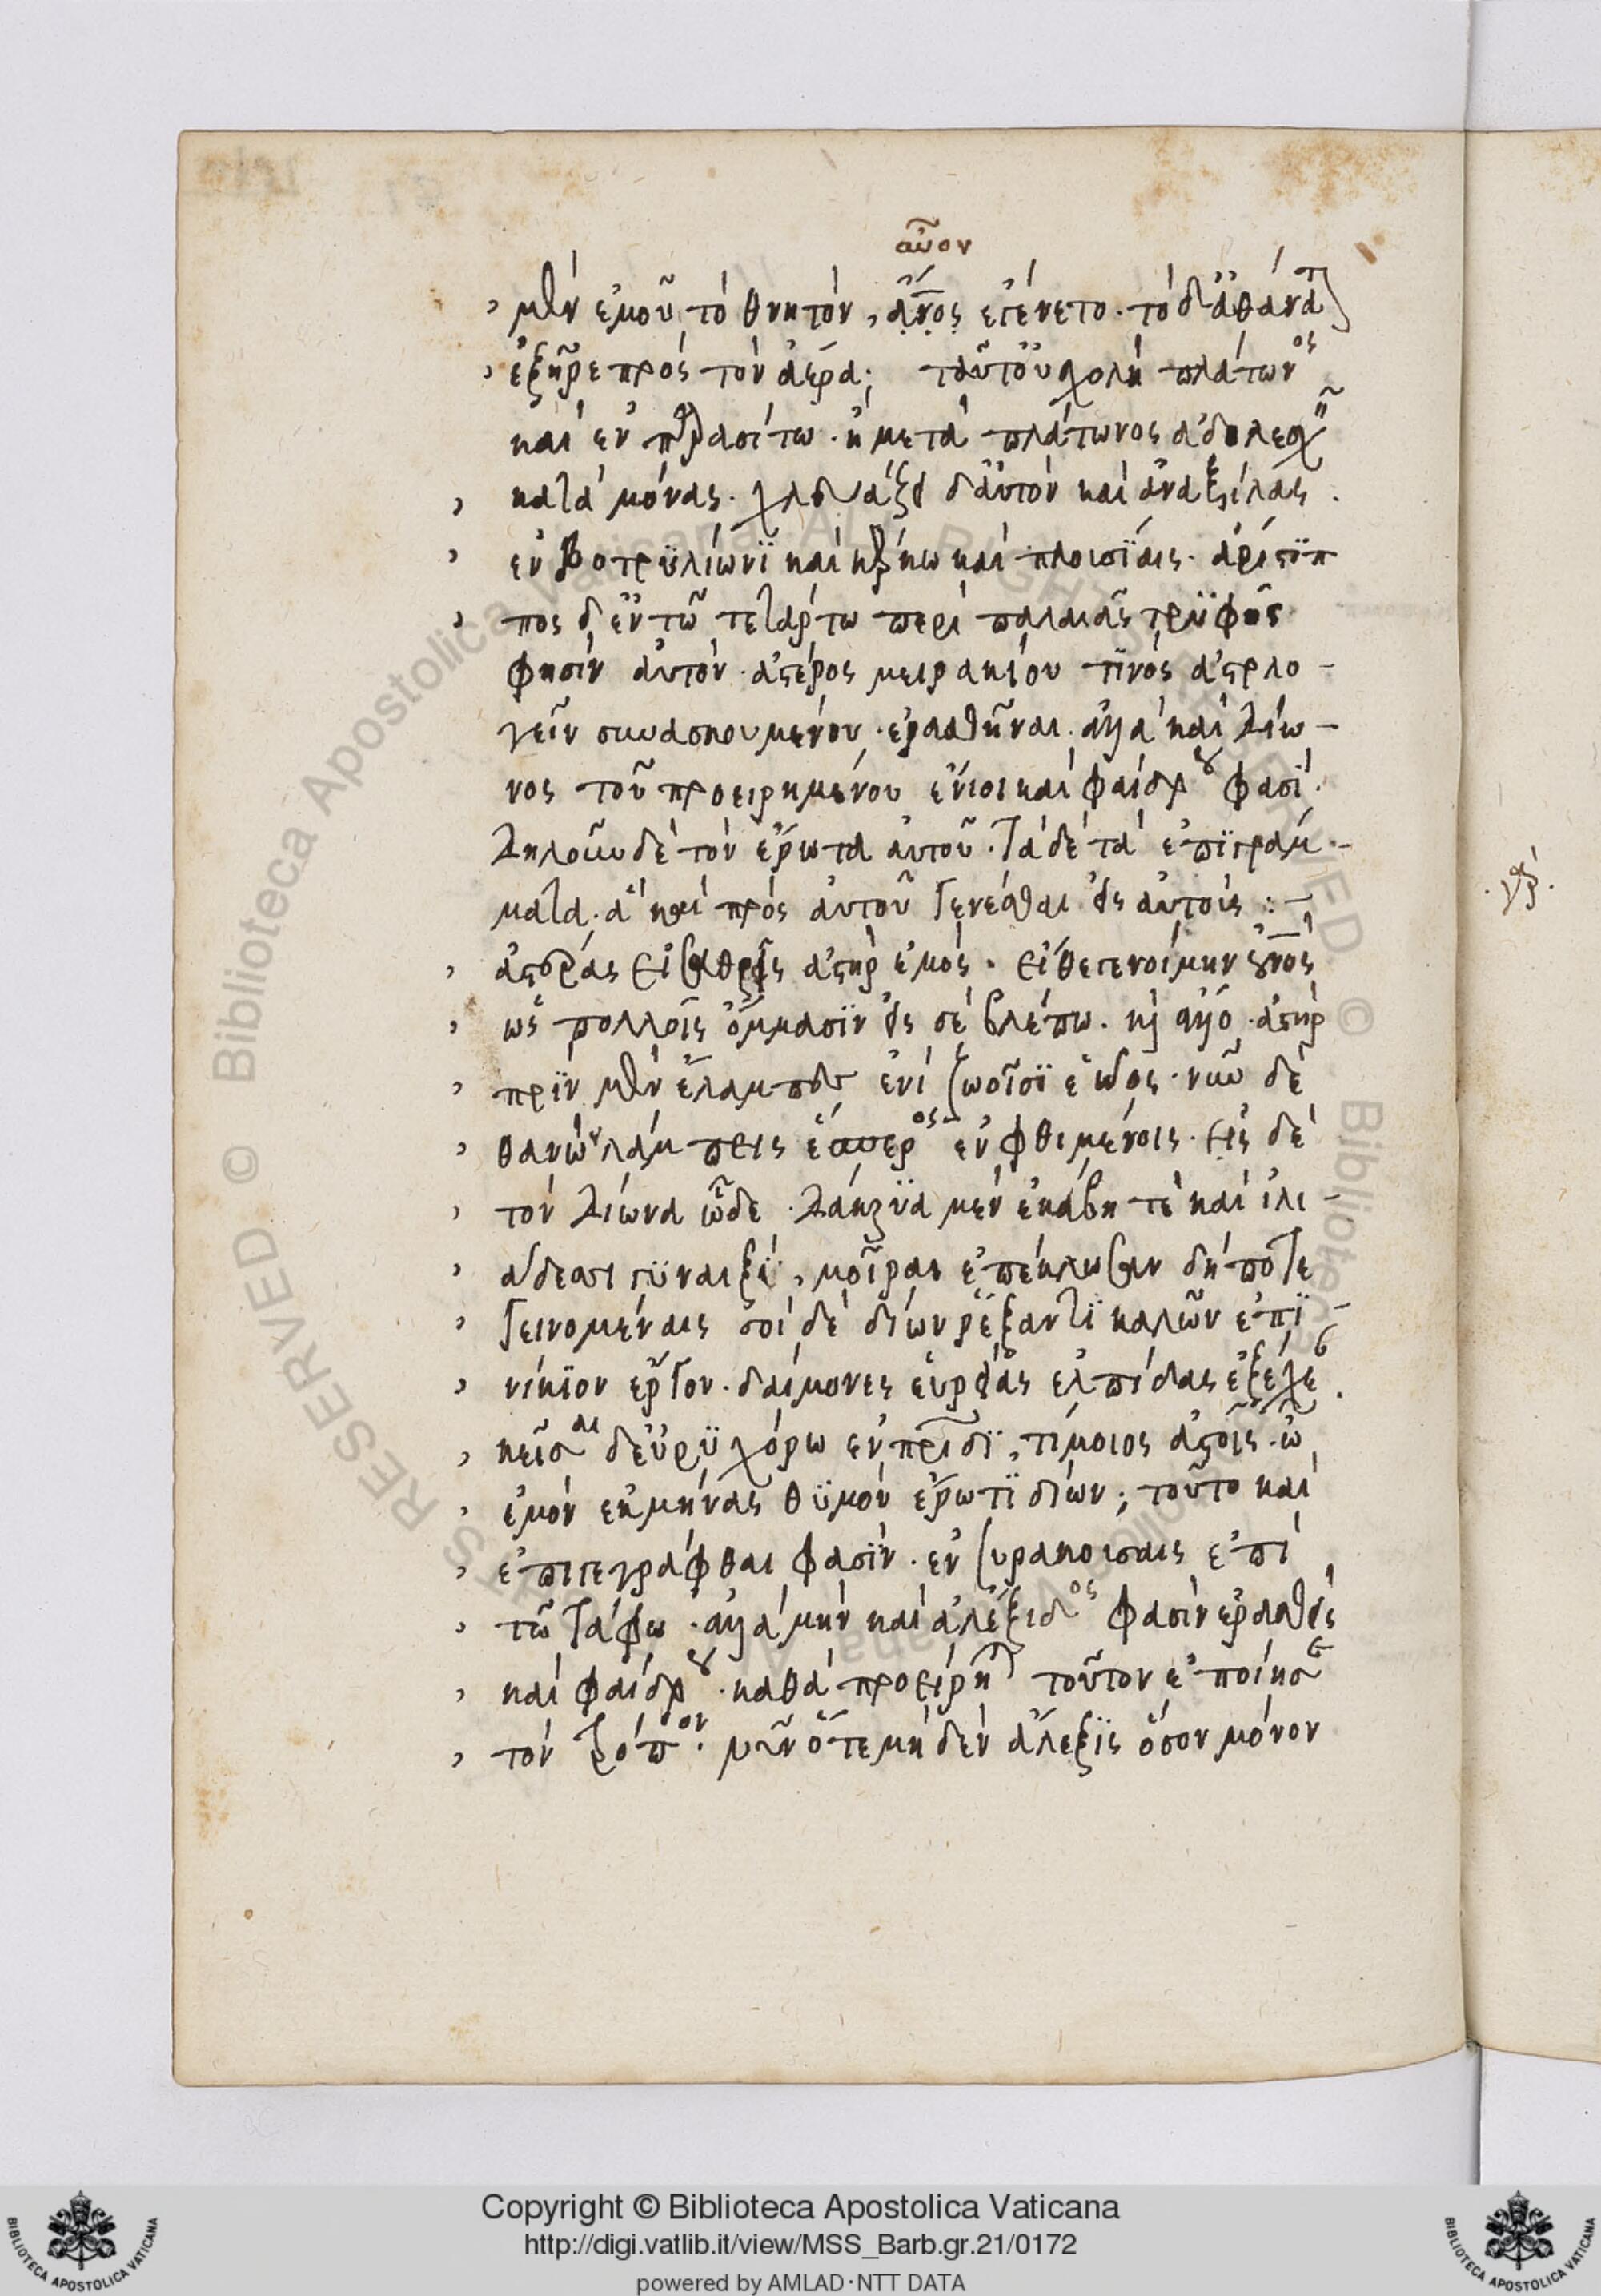 αὗον
μὲν ἐμοῦ τὸ θνητὸν, ἄν̅ος ἐγένετο. τὸ δ' ἀθάνατ
ἐξῆρε πρὸς τὸν ἀέρα; ταῦτ' οὐ σχολὴ πλάτωνος
καὶ ἐν παρασίτω. ἢ μετὰ πλάτωνος ἀδολεσχεῖν
κατὰ μόνας. χλευάζει δ' αὐτὸν καὶ ἀναξίλας.
ἐν βοτρυλίωνϊ καὶ κίρκη καὶ πλουσίαις. ἀρίστιπ
πος δ' ἐν τῶ τετάρτω περὶ παλαιᾶς τρϋφῆς
φησὶν αὐτὸν ἀστέρος μειρακίου τινὸς ἀστρλο-
γεῖν συνασκουμένου. ἐρασθῆναι. ἀλλὰ καὶ δίω-
νος τοῦ προειρημένου ἔνιοι καὶ φαίδρου φασὶ.
δηλοῦν δὲ τὸν ἔρωτα αὐτοῦ. τάδε τὰ ἐπιγράμ-
ματα. ἃ καὶ πρὸς αὐτοῦ γενέσθαι εἰς αὐτοὺς :-
ἀστέρας εἰσαθρεῖς ἀστὴρ ἐμὸς. εἴθε γενοίμην οὐν̅ὸς
ὡς πολλοῖς ὄμμασϊν εἰς σὲ βλέπω. καὶ ἄλλο. ἀστὴρ
πρϊν μὲν ἔλαμπες ἐνὶ ζωοῖσϊ ἑῶος. νῦν δὲ
θανὼν λάμπεις ἕσπερος ἐν φθιμένοις. εἰς δὲ
τὸν δίωνα ὧδε. δάκρϋα μὲν ἑκάβη τὲ καὶ ἰλι-
άδεσσι γϋναιξὶ, μοῖραι ἐπέκλωσαν δήποτε
γεινομέναις σοὶ δὲ δίων ῥέξαντϊ καλῶν ἐπϊ-
νίκϊον ἔργον. δαίμονες εὐρείας ἐλπίδας ἐξέχε.
κεῖσαι δ' εὐρϋχόρω ἐν πρ̅ίδϊ, τίμοιος ἀστοῖς. ὦ
ἐμὸν ἐκμήνας θϋμὸν ἔρωτϊ δίων; τοῦτο καὶ
ἐπιγεγράφθαι φασὶν. ἐν συρακούσαις ἐπὶ
τῶ τάφω. ἀλλὰ μὴν καὶ ἀλέξιδος φασὶν ἐρασθεὶς
καὶ φαίδρου. καθὰ προείρηται τοῦτον ἐποίησε
τὸν τρόπον. νῦν ὅτε μηδὲν ἄλεξϊς ὅσον μόνον
.γρ.
Copyright © Biblioteca Apostolica Vaticana
http://digi.vatlib.it/view/MSS_Barb.gr.21/0172
powered by AMLAD·NTT DATA